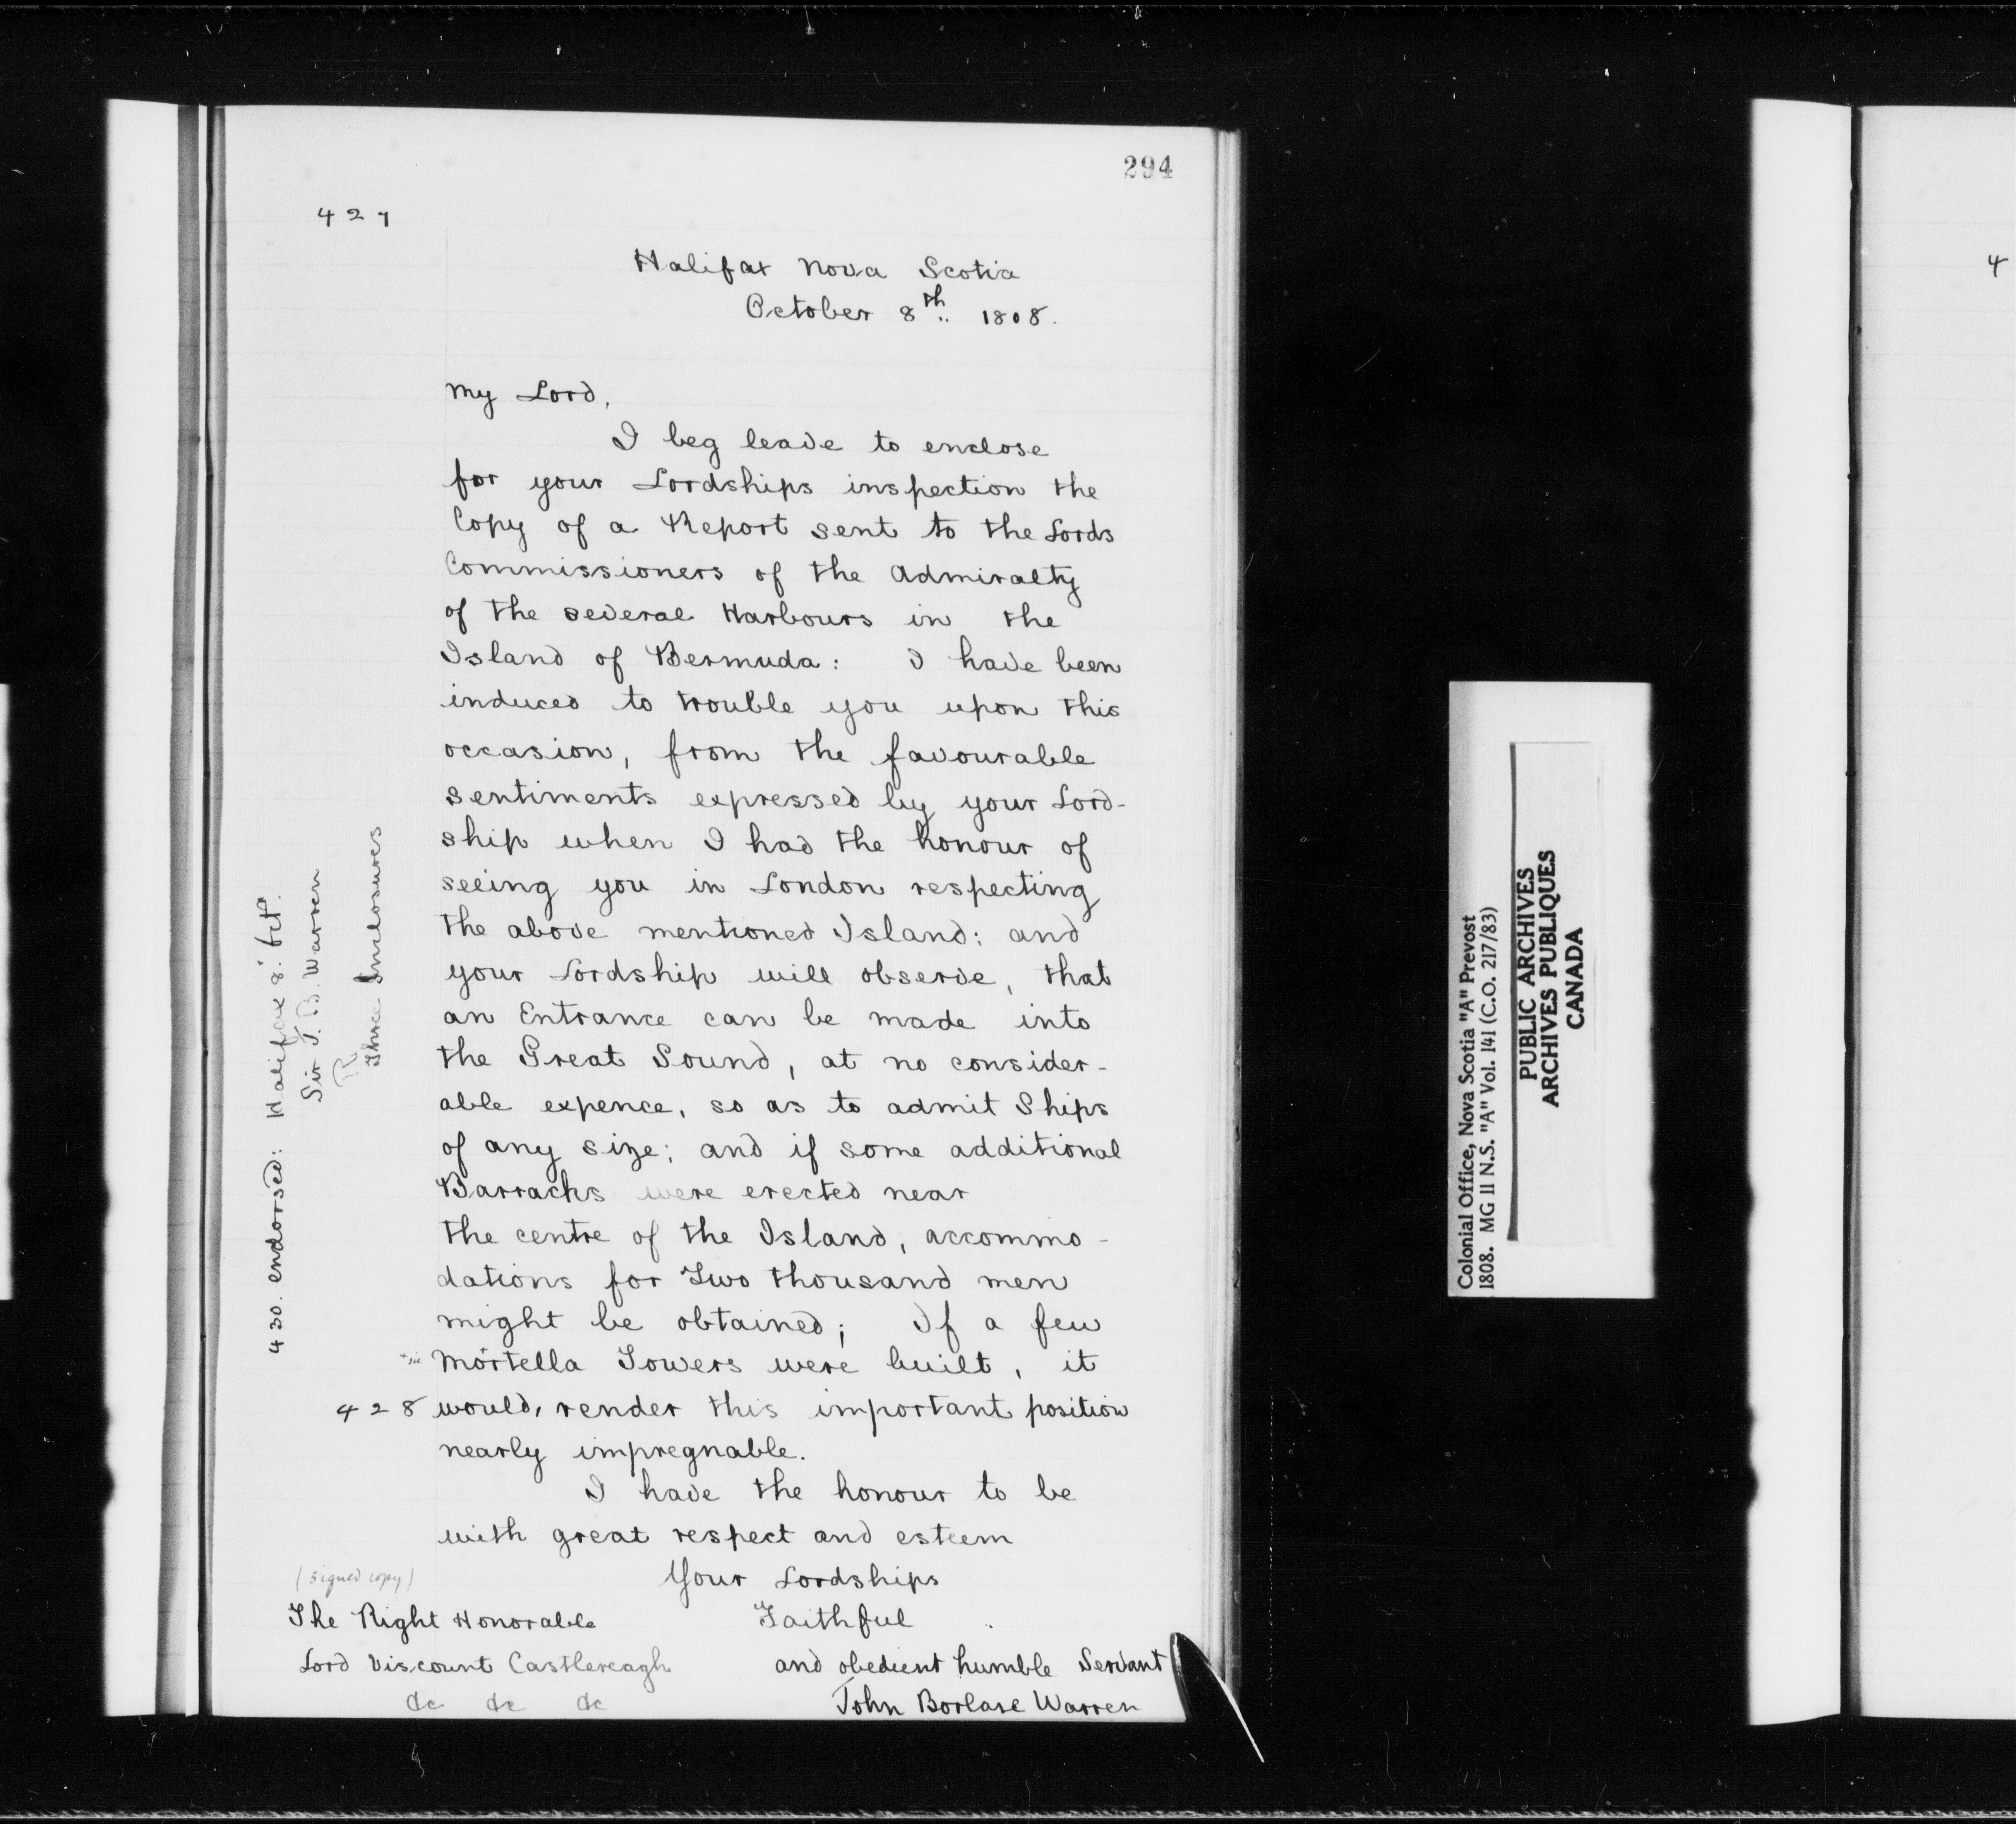 294
427
Halifax Nova Scotia
October 8th. 1808.
My Lord,
I beg leave to enclose
for your Lordships inspection the
Copy of a Report sent to the Lords
Commissioners of the Admiralty
of the several Harbours in the
Island of Bermuda: I have been
induced to trouble you upon this
occasion, from the favourable
sentiments expressed by your Lord-
ship when I had the honour of
seeing you in London respecting
the above mentioned Island: and
your Lordship will observe, that
an Entrance can be made into
the Great Sound, at no consider-
able expence, so as to admit Ships
of any size; and if some additional
Barracks were erected near
the centre of the Island, accommo-
dations for Two thousand men
might be obtained; If a few
Mortella Towers were built, it
428 would, render this important position
nearly impregnable.
I have the honour to be
with great respect and esteem
Your Lordships
Faithful
and obedient humble Servant
John Borlase Warren
(signed copy)
The Right Honorable
Lord Viscount Castlereagh
&c &c &c
430. endorsed: Halifax 8. Oct.
Sir J. B. Warren
R
Three Inclosures
Colonial Office, Nova Scotia "A" Prevost
1808. MG 11 N.S. "A" Vol. 141 (C.O. 217/83)
PUBLIC ARCHIVES
ARCHIVES PUBLIQUES
CANADA
4